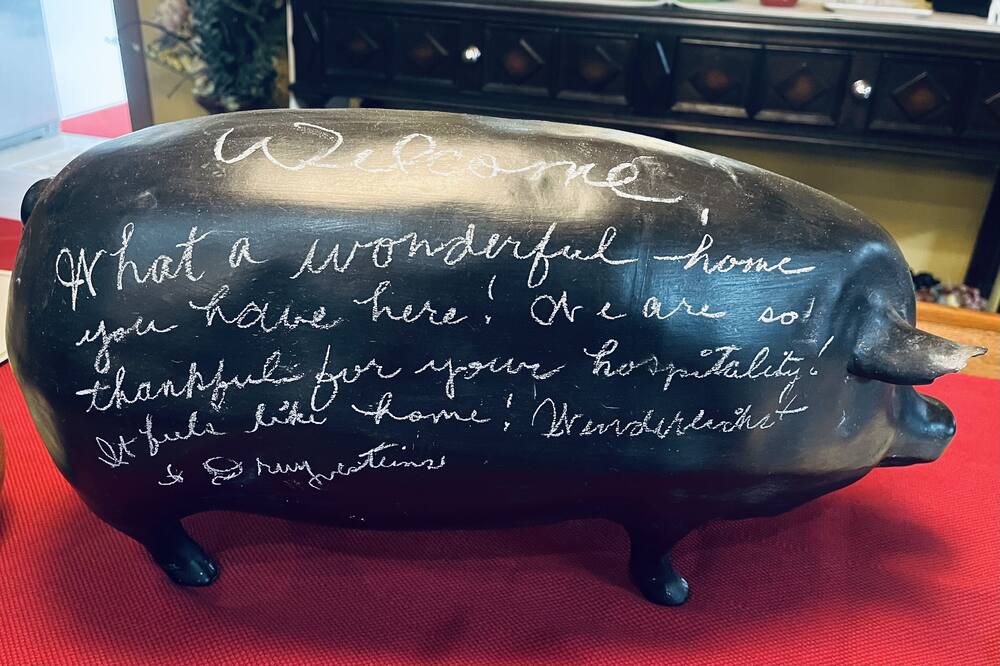 Welcome
What a wonderful home
you have here! We are so
thankful for your hospitality!
It feels like home!
&